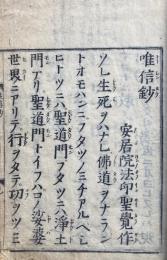 唯信鈔
安居院法印聖覺作
ソレ生死ヲハナレ佛道ヲナラン
トオモハンニフタツノミチアルヘシ
ヒトツニハ聖道門フタツニハ淨土
門ナリ聖道門トイフハコノ娑婆
世界ニアリテ行ヲタテ功ヲツミ